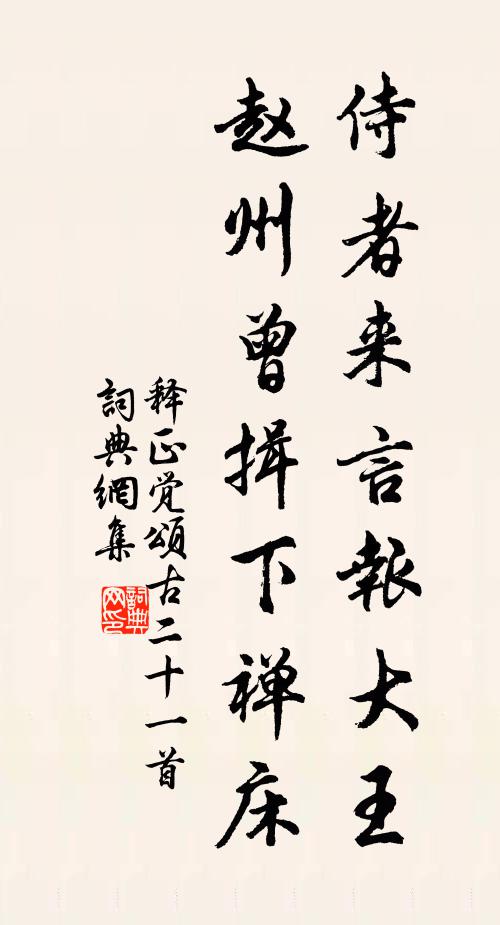 侍者来言報大王
赵州曾揖下禅床
释正觉頌古二十一首
詞典網集
詞典
网印